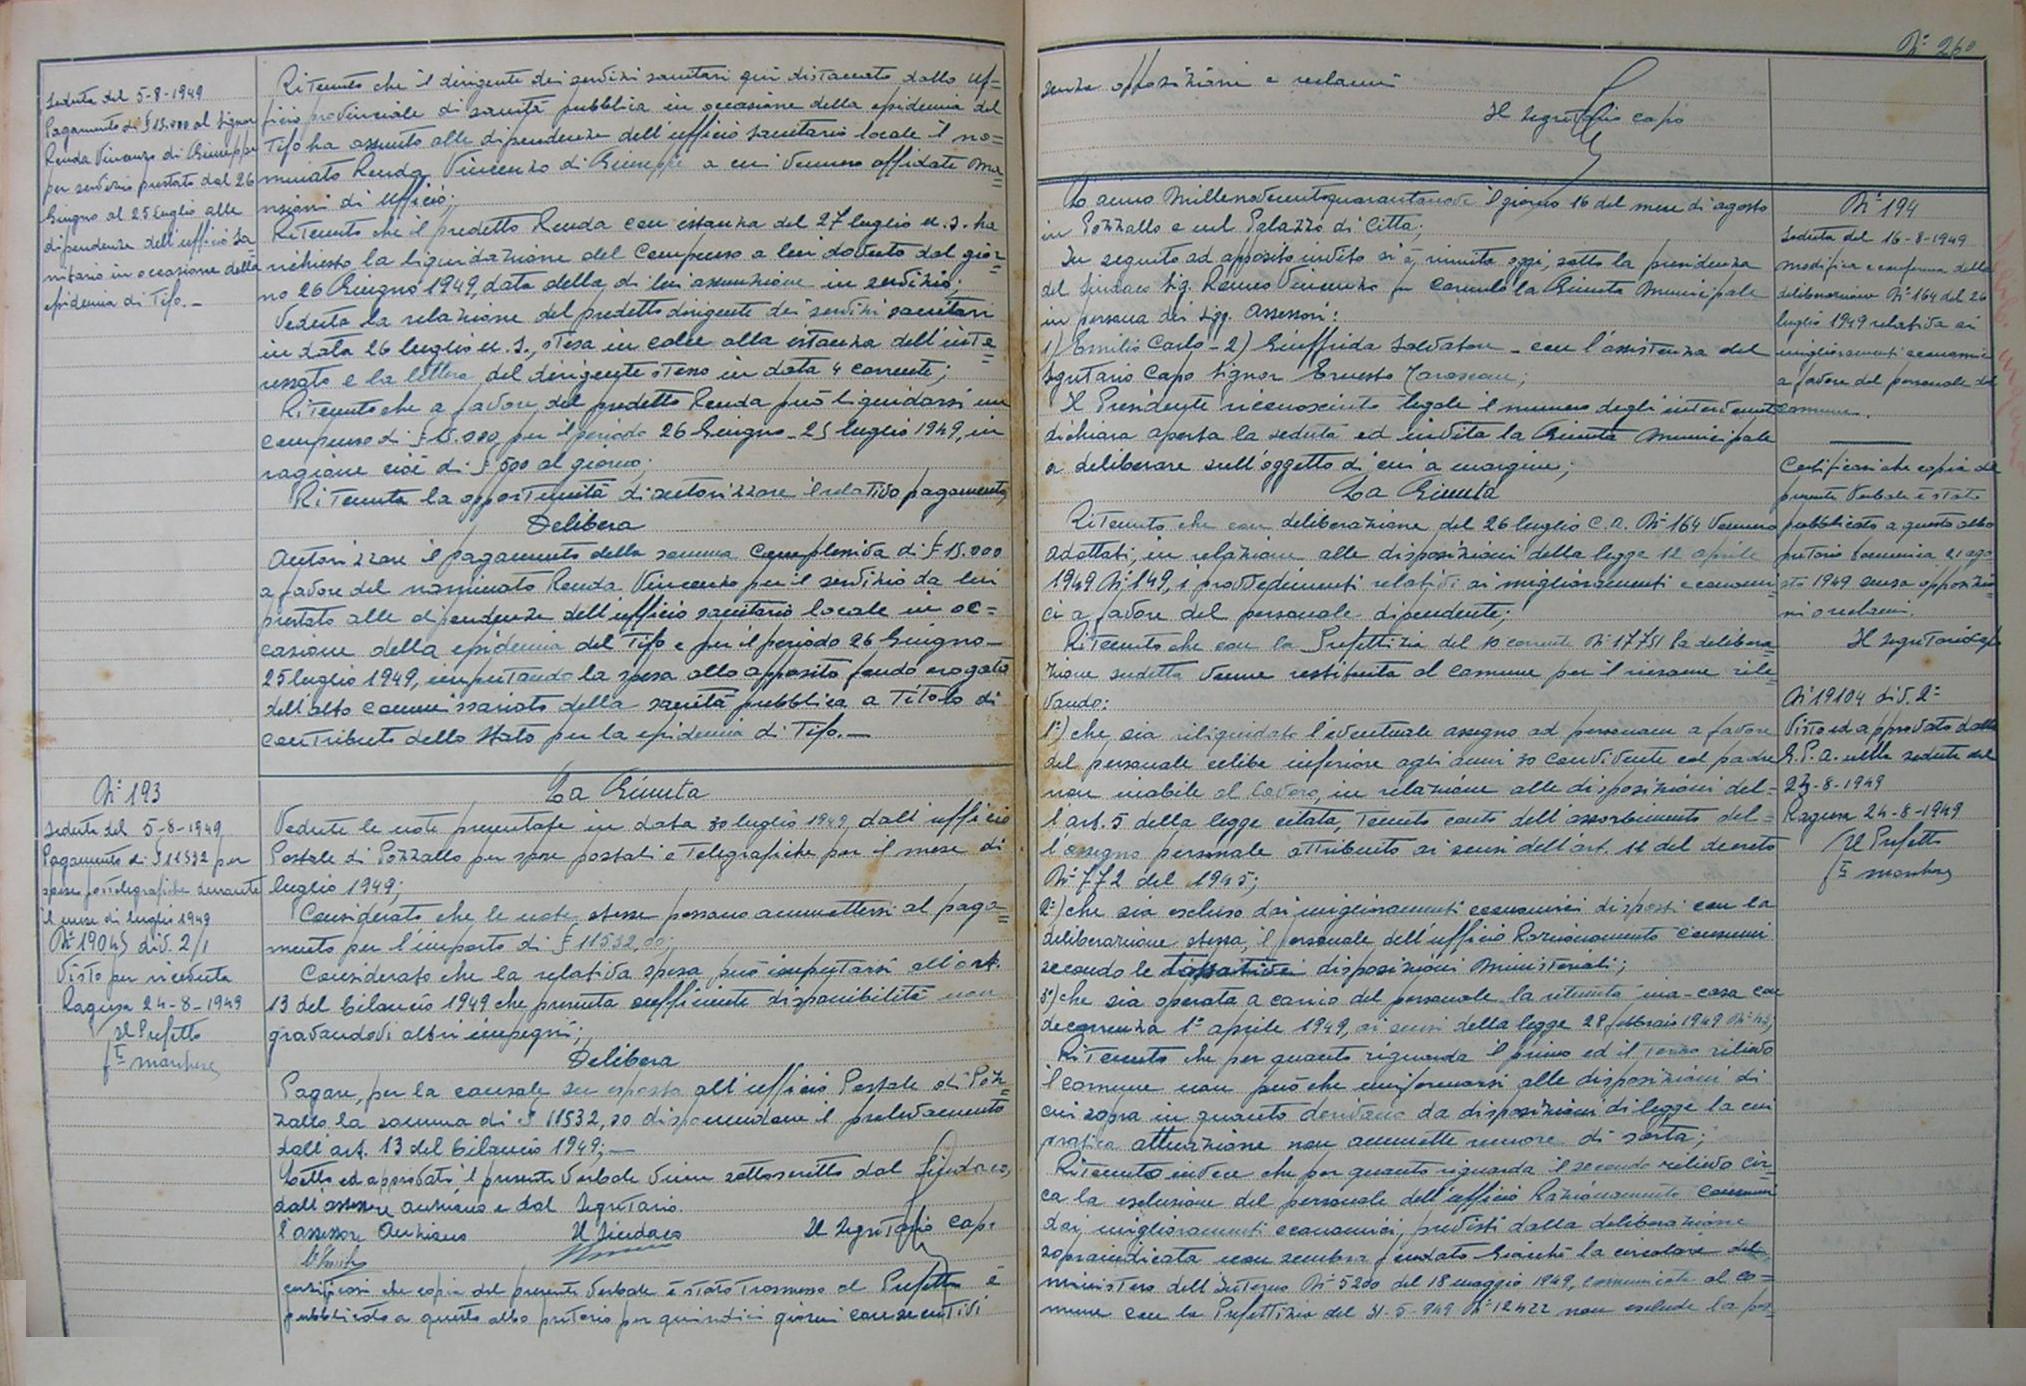 Seduta del 5-8-1949
Pagamento di £ 15.000 al Signor
Renda Vincenzo di Giuseppe
per servizio prestato dal 26
Giugno al 25 Luglio alle
dipendenze dell'ufficio Sa
nitario in occasione della
epidemia di Tifo. -
Ritenuto che il dirigente dei servizi sanitari qui distaccato dallo uf=
ficio provinciale di sanità pubblica in occasione della epidemia del
Tifo ha assunto alle dipendenze dell'ufficio sanitario locale il no=
minato Renda Vincenzo di Giuseppe a cui vennero affidate ma=
nsioni di ufficio;
Ritenuto che il predetto Renda con istanza del 27 luglio u.s. ha
richiesto la liquidazione del compenso a lui dovuto dal gior=
no 26 Giugno 1949, data della di lui assunzione in servizio;
Veduta la relazione del predetto dirigente dei servizi sanitari
in data 26 luglio u.s., stesa in calce alla istanza dell'inte=
ressato e la lettera del dirigente stesso in data 4 corrente;
Ritenuto che a favore del predetto Renda può liquidarsi un
compenso di £ 15.000 per il periodo 26 Giugno - 25 luglio 1949, in
ragione cioè di £ 500 al giorno;
Ritenuta la opportunità di autorizzare il relativo pagamento;
Delibera
Autorizzare il pagamento della somma complessiva di £ 15.000
a favore del nominato Renda Vincenzo per il servizio da lui
prestato alle dipendenze dell'ufficio sanitario locale in oc=
casione della epidemia del Tifo e per il periodo 26 Giugno -
25 luglio 1949, imputando la spesa allo apposito fondo erogato
dell'alto commissariato della sanità pubblica a Titolo di
contributo dello Stato per la epidemia di Tifo. -
N° 193
Seduta del 5-8-1949
Pagamento di £ 11532 per
spese postelegrafiche durante
il mese di luglio 1949
N° 19045 div. 2/1
Visto per ricevuta
Ragusa 24-8-1949
Il Prefetto
fto
La Giunta
Vedute le note presentate in data 30 luglio 1949, dall'ufficio
Postale di Pozzallo per spese postali e Telegrafiche per il mese di
luglio 1949;
Considerato che le note stesse possano ammettersi al paga=
mento per l'importo di £ 11532,
Considerato che la relativa spesa può imputarsi all'art.
13 del bilancio 1949 che presenta sufficiente disponibilità non
gravandovi altri impegni;
Delibera
Pagare, per la causale su esposta all'ufficio Postale di Poz=
zallo la somma di £ 11532, disponendone il prelevamento
dall'art. 13 del bilancio 1949; -
Letto ed approvato il presente verbale viene sottoscritto dal Sindaco,
dall'assessore anziano e dal Segretario.
l'assessore Anziano Il Sindaco Il Segretario capo
certificasi che copia del presente verbale è stato trasmesso al Prefetto e
pubblicato a questo albo pretorio per quindici giorni consecutivi
N° 260
senza opposizioni e reclami
Il Segretario capo
Lo anno Millenovecentoquarantanove il giorno 16 del mese di agosto
in Pozzallo e nel Palazzo di Città;
In seguito ad apposito invito si è, riunita oggi, sotto la presidenza
del Sindaco Sig. Vincenzo la Giunta Municipale
in persona dei Sigg. Assessori:
1) Emilio Carlo - 2) Giuffrida Salvatore - con l'assistenza del
Segretario Capo Signor Ernesto
Il Presidente riconosciuto legale il numero degli intervenuti
dichiara aperta la seduta ed invita la Giunta Municipale
a deliberare sull'oggetto di cui a margine;
La Giunta
Ritenuto che con deliberazione del 26 luglio C.A. N° 164 vennero
adottati, in relazione alle disposizioni della legge 12 aprile
1949 N° 149, i provvedimenti relativi ai miglioramenti economi
ci a favore del personale dipendente;
Ritenuto che con la Prefettizia del 10 corrente N° 17751 la delibera
zione sudetta venne restituita al comune per il riesame rile=
vando:
1°) che sia riliquidato l'eventuale assegno ad personam a favore
del personale celibe inferiore agli anni 30 convivente col padre
non inabile al lavoro, in relazione alle disposizioni del=
l'art. 5 della legge citata, tenuto conto dell'assorbimento del=
l'assegno personale attribuito ai sensi dell'art. 11 del decreto
N° 772 del 1945;
2°) che sia escluso dai miglioramenti economici disposti con la
deliberazione stessa, il personale dell'ufficio Razionamento consumi
secondo le disposizioni Ministeriali;
3°) che sia operata a carico del personale la ritenuta ina-casa con
decorrenza 1° aprile 1949, ai sensi della legge 28 febbraio 1949 N°
Ritenuto che per quanto riguarda il primo ed il terzo rilievo
il comune non può che uniformarsi alle disposizioni di
cui sopra in quanto derivano da disposizioni di legge la cui
pratica attuazione non ammette remore di sorta;
Ritenuto invece che per quanto riguarda il secondo rilievo cir=
ca la esclusione del personale dell'ufficio Razionamento consumi
dai miglioramenti economici, previsti dalla deliberazione
sopraindicata non sembra fondato Giacché la circolare del
ministero dell'Interno N° 5200 del 18 maggio 1949, comunicata al co=
mune con la Prefettizia del 31-5-949 N° 12422 non esclude la pos=
N° 194
Seduta del 16-8-1949
modifica e conferma della
deliberazione N° 164 del 26
luglio 1949 relativa ai
miglioramenti economici
a favore del personale del
comune.
Certificasi che copia del
presente verbale è stato
pubblicato a questo albo
pretorio domenica 21 ago
sto 1949 senza opposizio
ni o reclami.
Il Segretario Capo
N° 19104 div. 2°
Visto ed approvato dalla
G.P.A. nella seduta del
23-8-1949
Ragusa 24-8-1949
Il Prefetto
fto